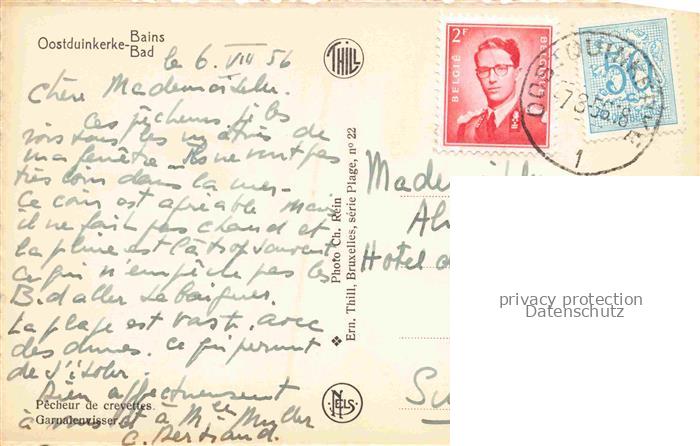 Oostduinkerke-Bains
Bad
le 6. VIII 56
Chère Mademoiselle.
Ces pêcheurs, je les
vois sous les
ma fenêtre. Ils ne vont pas
très loin dans la mer.
Ce coin est agréable mais
il ne fait pas chaud et
la pluie est là trop souvent
ce qui n'empêche pas les
B. d'aller se baigner.
La plage est vaste, avec
des dunes. Ce qui permet
de s'isoler.
Bien affectueusement
à vous et à Mlle Muller
C. Bertrand.
Pêcheur de crevettes.
Garnalenvisser.
THILL
Photo Ch. Réin
Ern. Thill, Bruxelles, série Plage, nº 22
NELS
2F
BELGIË
BELGIQUE
50
OOSTDUINKERKE
-7 8 56 18
1
Hotel
privacy protection
Datenschutz